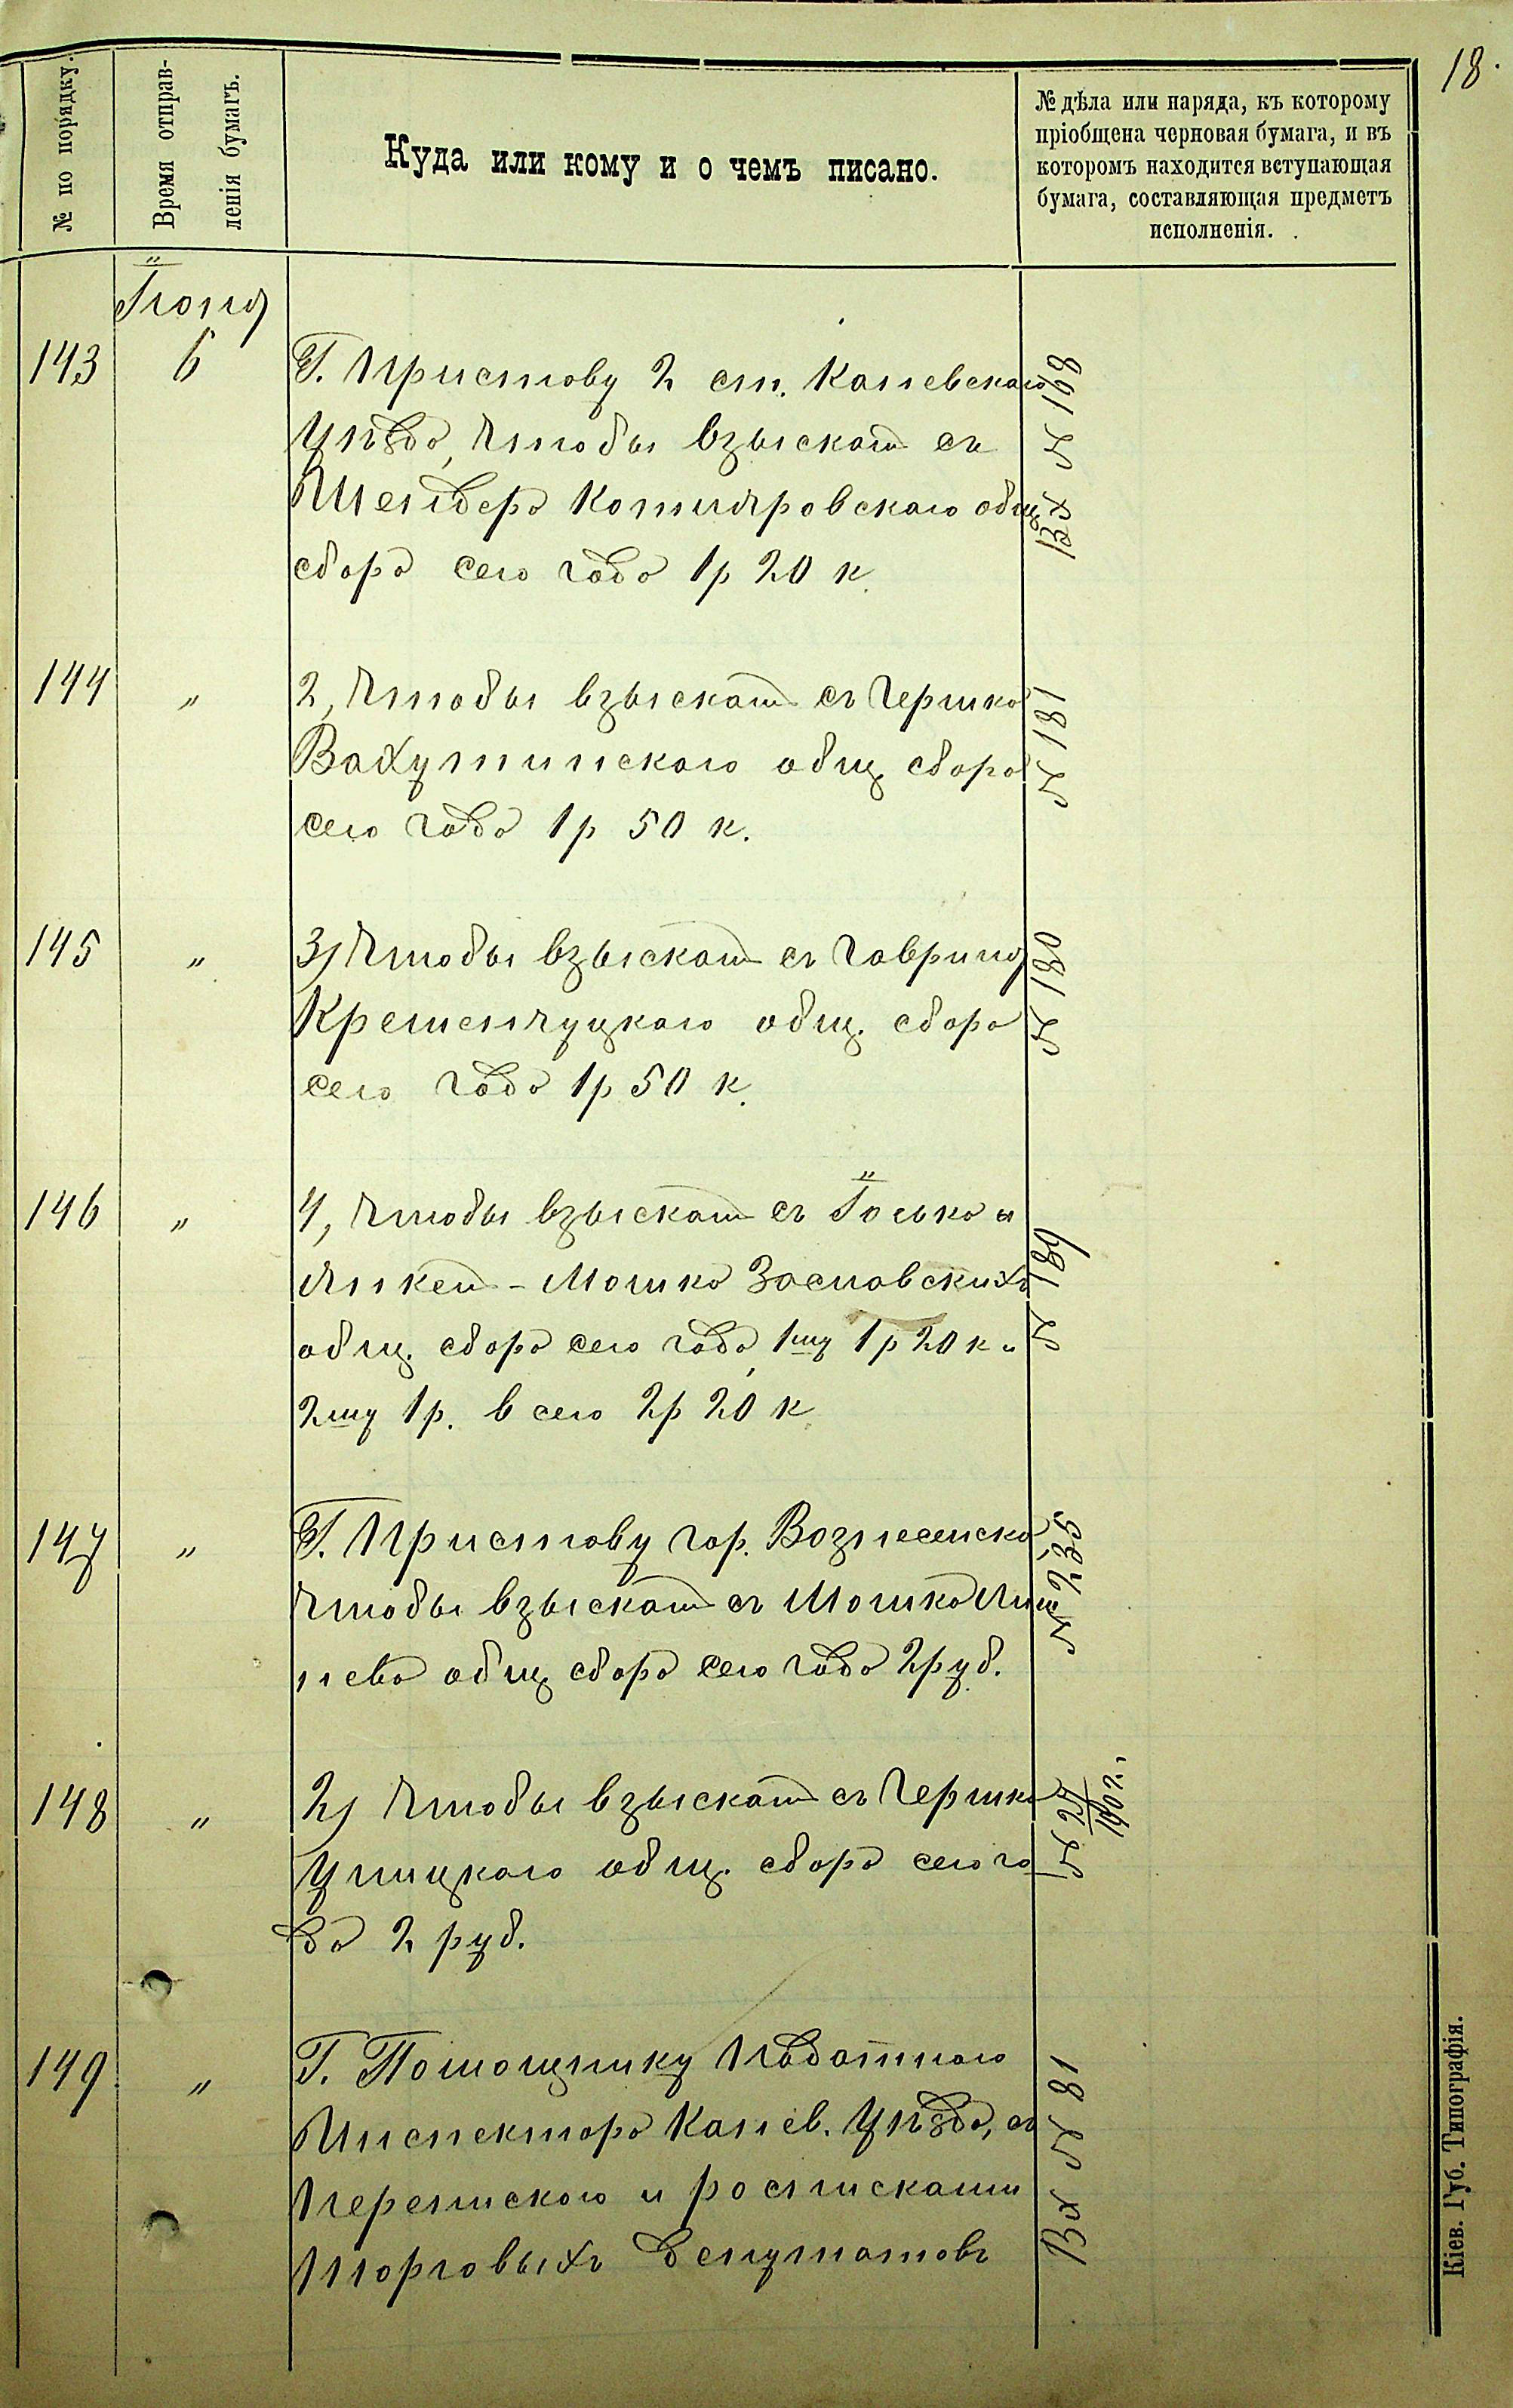 18.
№ по порядку.
Время отправ-
ленія бумагъ.
Куда или кому и о чемъ писано.
№ дѣла или наряда, къ которому
пріобщена черновая бумага, и въ
которомъ находится вступающая
бумага, составляющая предметъ
исполненія.
Іюня
143 6 Г. Приставу 2 ст. Каневскаго
Уѣзда, чтобы взыскать съ
Шендера Котляровскаго общ.
сбора сего года 1 р 20 к.
Вх № 168
144 " 2, чтобы взыскать съ Гершка
Вахутинскаго общ. сбора
сего года 1 р 50 к.
№ 181
145 " 3) чтобы взыскать съ Гаврила
Кременчуцкаго общ. сбора
сего года 1 р 50 к.
№ 180
146 " 4, чтобы взыскать съ Іоська и
Янкеля-Мошка Заславскихъ
общ. сбора сего года, 1му 1 р 20 к и
2му 1 р. всего 2 р 20 к
№ 189
147 " Г. Приставу гор. Вознесенска
чтобы взыскать съ Мошка
нева общ. сбора сего года 2 руб.
№ 235
148 " 2) чтобы взыскать съ Гершка
общ. сбора сего го
да 2 руб.
№ 27
190 г.
149 " Г. Помощнику Податнаго
Инспектора Канев. Уѣзда, съ
перепискою и росписками
торговыхъ депутатовъ
Вх № 81
Кіев. Губ. Типографія.